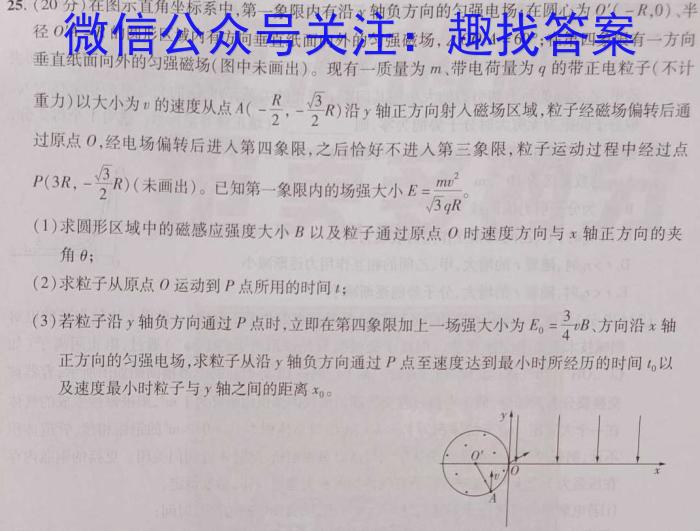 25. (20 分)在图示直角坐标系中,第一象限内有沿 y 轴负方向的匀强电场,在圆心为 O′(-R,0)、半
微信公众号关注:趣找答案
垂直纸面向外的匀强磁场(图中未画出)。现有一质量为 m、带电荷量为 q 的带正电粒子(不计
重力)以大小为 v 的速度从点 A(-R/2,-√3/2 R)沿 y 轴正方向射入磁场区域,粒子经磁场偏转后通
过原点 O,经电场偏转后进入第四象限,之后恰好不进入第三象限,粒子运动过程中经过点
P(3R,-√3/2 R)(未画出)。已知第一象限内的场强大小 E=mv²/√3qR。
(1)求圆形区域中的磁感应强度大小 B 以及粒子通过原点 O 时速度方向与 x 轴正方向的夹
角 θ;
(2)求粒子从原点 O 运动到 P 点所用的时间 t;
(3)若粒子沿 y 轴负方向通过 P 点时,立即在第四象限加上一场强大小为 E₀=3/4 vB、方向沿 x 轴
正方向的匀强电场,求粒子从沿 y 轴负方向通过 P 点至速度达到最小时所经历的时间 t₀以
及速度最小时粒子与 y 轴之间的距离 x₀。
y
O′
v
O
x
A